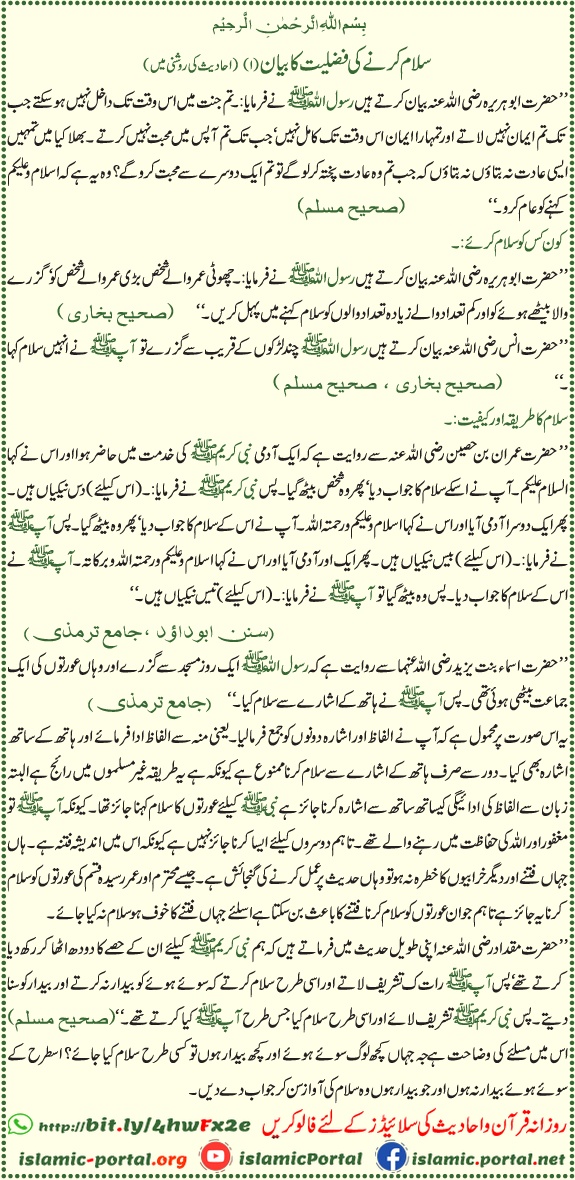 بِسْمِ اللّٰہِ الرَّحْمٰنِ الرَّحِیْمِ
سلام کرنے کی فضلیت کا بیان (۱) (احادیث کی روشنی میں)
’’حضرت ابوہریرہ رضی اللہ عنہ بیان کرتے ہیں رسول اللہ ﷺ نے فرمایا:۔ تم جنت میں اس وقت تک داخل نہیں ہو سکتے جب
تک تم ایمان نہیں لاتے اور تمہارا ایمان اس وقت تک کامل نہیں‘ جب تک تم آپس میں محبت نہیں کرتے۔ بھلا کیا میں تمہیں
ایسی عادت نہ بتاؤں نہ بتاؤں کہ جب تم وہ عادت پختہ کر لو گے تو تم ایک دوسرے سے محبت کرو گے؟ وہ یہ ہے کہ اسلام و علیکم
کہنے کو عام کرو۔‘‘ (صحیح مسلم)
کون کس کو سلام کرئے:۔
’’حضرت ابوہریرہ رضی اللہ عنہ بیان کرتے ہیں رسول اللہ ﷺ نے فرمایا:۔ چھوٹی عمر والے شخص بڑی عمر والے شخص کو‘ گزرے
والا بیٹھے ہوئے کو اور کم تعداد والے زیادہ تعداد والوں کو سلام کہنے میں پہل کریں۔‘‘ (صحیح بخاری)
’’حضرت انس رضی اللہ عنہ بیان کرتے ہیں رسول اللہ ﷺ چند لڑکوں کے قریب سے گزرے تو آپ ﷺ نے انہیں سلام کہا
۔‘‘ (صحیح بخاری ، صحیح مسلم)
سلام کا طریقہ اور کیفیت:۔
’’حضرت عمران بن حصین رضی اللہ عنہ سے روایت ہے کہ ایک آدمی نبی کریم ﷺ کی خدمت میں حاضر ہوا اور اس نے کہا
السلام علیکم۔ آپ نے اسکے سلام کا جواب دیا‘ پھر وہ شخص بیٹھ گیا۔ پس نبی کریم ﷺ نے فرمایا:۔ (اس کیلئے) دس نیکیاں ہیں۔
پھر ایک دوسرا آدمی آیا اور اس نے کہا اسلام و علیکم ورحمتہ اللہ۔ آپ نے اس کے سلام کا جواب دیا‘ پھر وہ بیٹھ گیا۔ پس آپ ﷺ
نے فرمایا:۔ (اس کیلئے) بیس نیکیاں ہیں۔ پھر ایک اور آدمی آیا اور اس نے کہا اسلام و علیکم ورحمتہ اللہ و برکاتہ۔ آپ ﷺ نے
اس کے سلام کا جواب دیا۔ پس وہ بیٹھ گیا تو آپ ﷺ نے فرمایا:۔ (اس کیلئے) تیس نیکیاں ہیں۔‘‘
(سنن ابوداؤد ،جامع ترمذی)
’’حضرت اسماء بنت یزید رضی اللہ عنہا سے روایت ہے کہ رسول اللہ ﷺ ایک روز مسجد سے گزرے اور وہاں عورتوں کی ایک
جماعت بیٹھی ہوئی تھی۔ پس آپ ﷺ نے ہاتھ کے اشارے سے سلام کیا۔‘‘ (جامع ترمذی)
یہ اس صورت پر محمول ہے کہ آپ نے الفاظ اور اشارہ دونوں کو جمع فرما لیا۔ یعنی منہ سے الفاظ ادا فرمائے اور ہاتھ کے ساتھ
اشارہ بھی کیا۔ دور سے صرف ہاتھ کے اشارے سے سلام کرنا ممنوع ہے کیونکہ ہے یہ طریقہ غیر مسلموں میں رائج ہے البتہ
زبان سے الفاظ کی ادائیگی کیساتھ ساتھ سے اشارہ کرنا جائز ہے نبی ﷺ کیلئے عورتوں کا سلام کہنا جائز تھا۔ کیونکہ آپ ﷺ تو
مغفور اور اللہ کی حفاظت میں رہنے والے تھے۔ تاہم دوسروں کیلئے ایسا کرنا جائز نہیں ہے کیونکہ اس میں اندیشہ فتنے ہے۔ ہاں
جہاں فتنے اور دیگر خرابیوں کا خطرہ نہ ہو تو وہاں حدیث پر عمل کرنے کی گنجائش ہے۔ جیسے محترم اور عمر رسیدہ قسم کی عورتوں کو سلام
کرنا یہ جائز ہے تاہم جوان عورتوں کو سلام کرنا فتنے کا باعث بن سکتا ہے اسلئے جہاں فتنے کا خوف ہو سلام نہ کیا جائے۔
’’حضرت مقداد رضی اللہ عنہ اپنی طویل حدیث میں فرماتے ہیں کہ ہم نبی کریم ﷺ کیلئے ان کے حصے کا دودھ اٹھا کر رکھ دیا
کرتے تھے‘ پس آپ ﷺ رات ک تشریف لاتے اور اسی طرح سلام کرتے کہ سوئے ہوئے کو بیدار نہ کرتے اور بیدار کو سنا
دیتے۔ پس نبی کریم ﷺ تشریف لائے اور اسی طرح سلام کیا جس طرح آپ ﷺ کیا کرتے تھے۔‘‘ (صحیح مسلم)
اس میں مسئلے کی وضاحت ہے جہ جہاں کچھ لوگ سوئے ہوئے اور کچھ بیدار ہوں تو کسی طرح سلام کیا جائے؟ اسطرح کے
سوئے ہوئے بیدار نہ ہوں اور جو بیدار ہوں وہ سلام کی آواز سن کر جواب دے دیں۔
روزانہ قرآن و احادیث کی سلائیڈز کے لئے فالو کریں http://bit.ly/4hwFx2e
islamic-portal.org islamicPortal islamic.portal.net